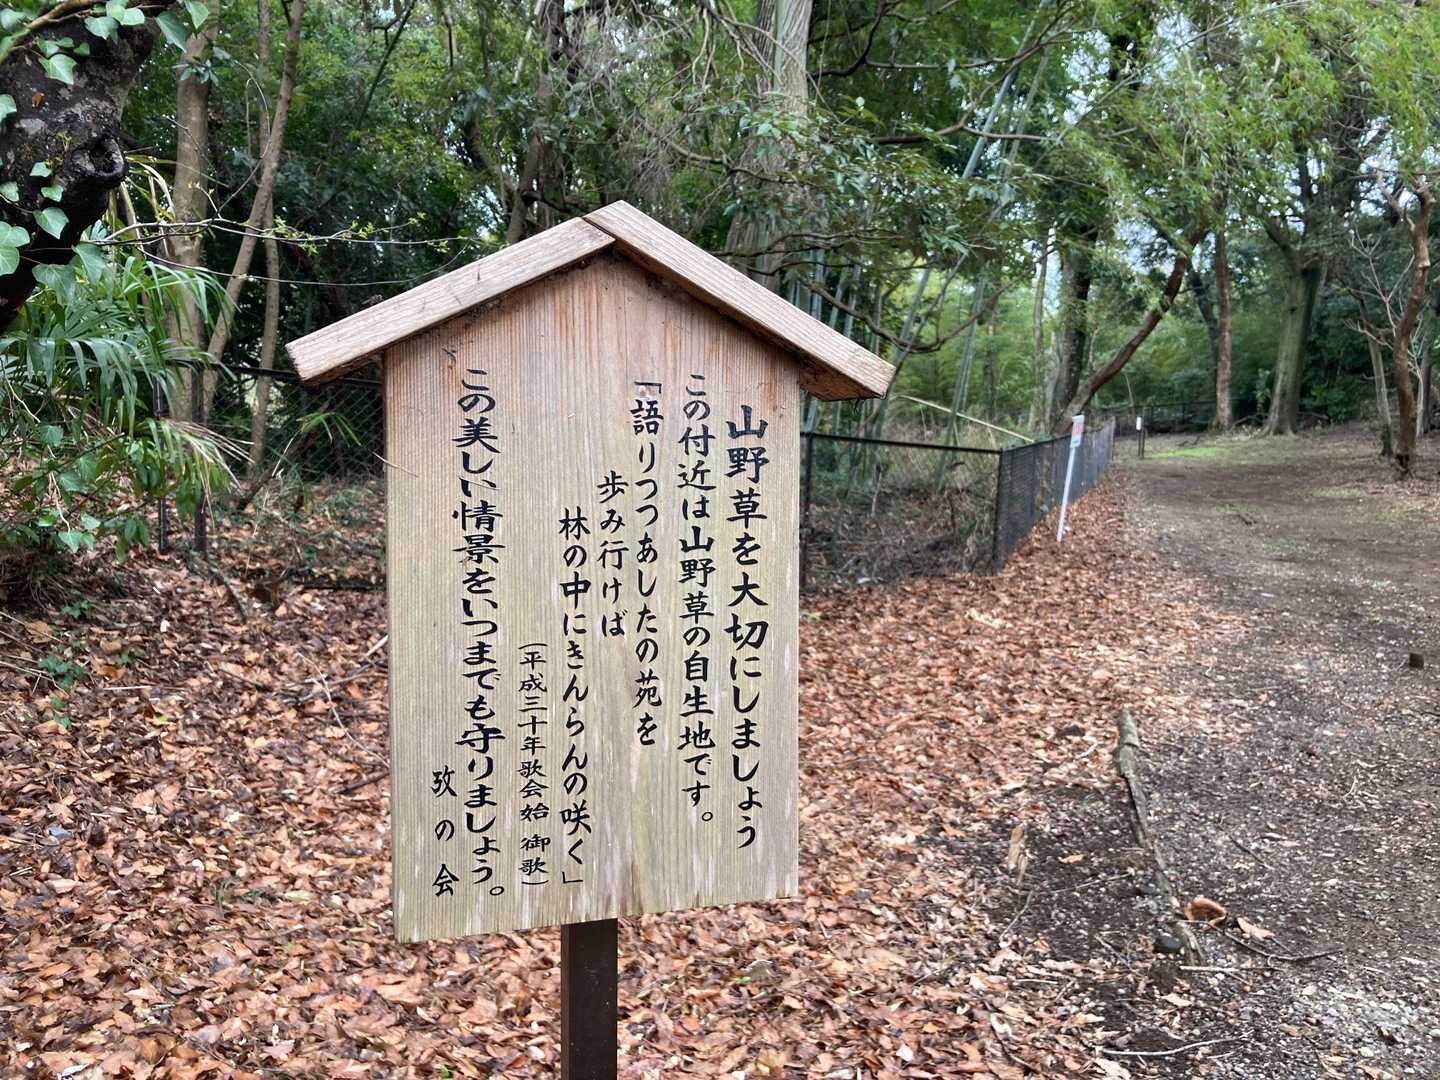 山野草を大切にしましょう
この付近は山野草の自生地です。
「語りつつあしたの苑を
歩み行けば
林の中にきんらんの咲く」
(平成三十年歌会始 御歌)
この美しい情景をいつまでも守りましょう。
攷の会